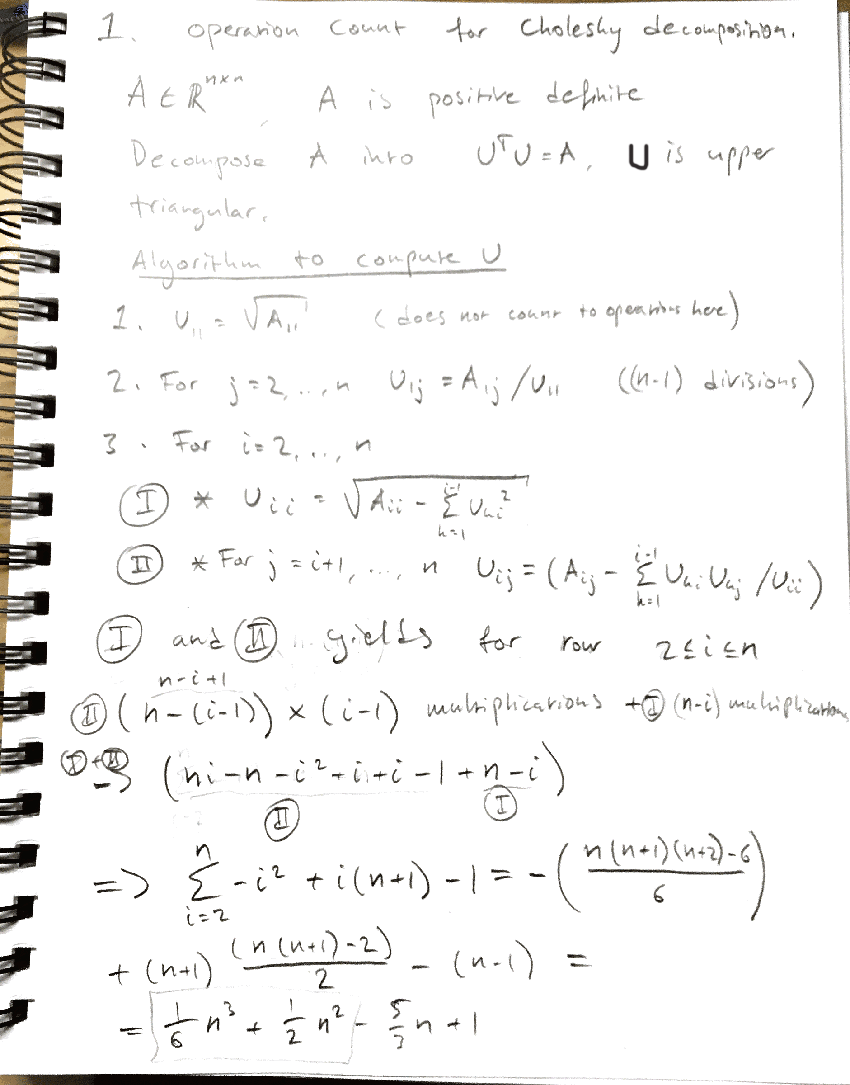 1. Operation Count for Cholesky decomposition.
A ∈ ℝⁿˣⁿ, A is positive definite
Decompose A into UᵀU = A, U is upper
triangular.
Algorithm to compute U
1. U₁₁ = √A₁₁ (does not count to operations here)
2. For j=2,...,n U₁ⱼ = A₁ⱼ/U₁₁ ((n-1) divisions)
3. For i=2,...,n
Ⓘ * Uᵢᵢ = √(Aᵢᵢ - Σ_{k=1}^{i-1} Uₖᵢ²)
Ⓘⓘ * For j=i+1,...,n Uᵢⱼ = (Aᵢⱼ - Σ_{k=1}^{i-1} Uₖᵢ Uₖⱼ /Uᵢᵢ)
Ⓘ and Ⓘⓘ yields for row 2≤i≤n
n-i+1
Ⓘⓘ (n-(i-1)) × (i-1) multiplications + Ⓘ (n-i) multiplications
Ⓘ+Ⓘⓘ -> (ni-n-i²+i+i-1+n-i)
Ⓘⓘ Ⓘ
=> Σ_{i=2}^{n} -i² + i(n+1) - 1 = -( (n(n+1)(n+2)-6)/6 )
+ (n+1) (n(n+1)-2)/2 - (n-1) =
= 1/6 n³ + 1/2 n² - 5/3 n + 1